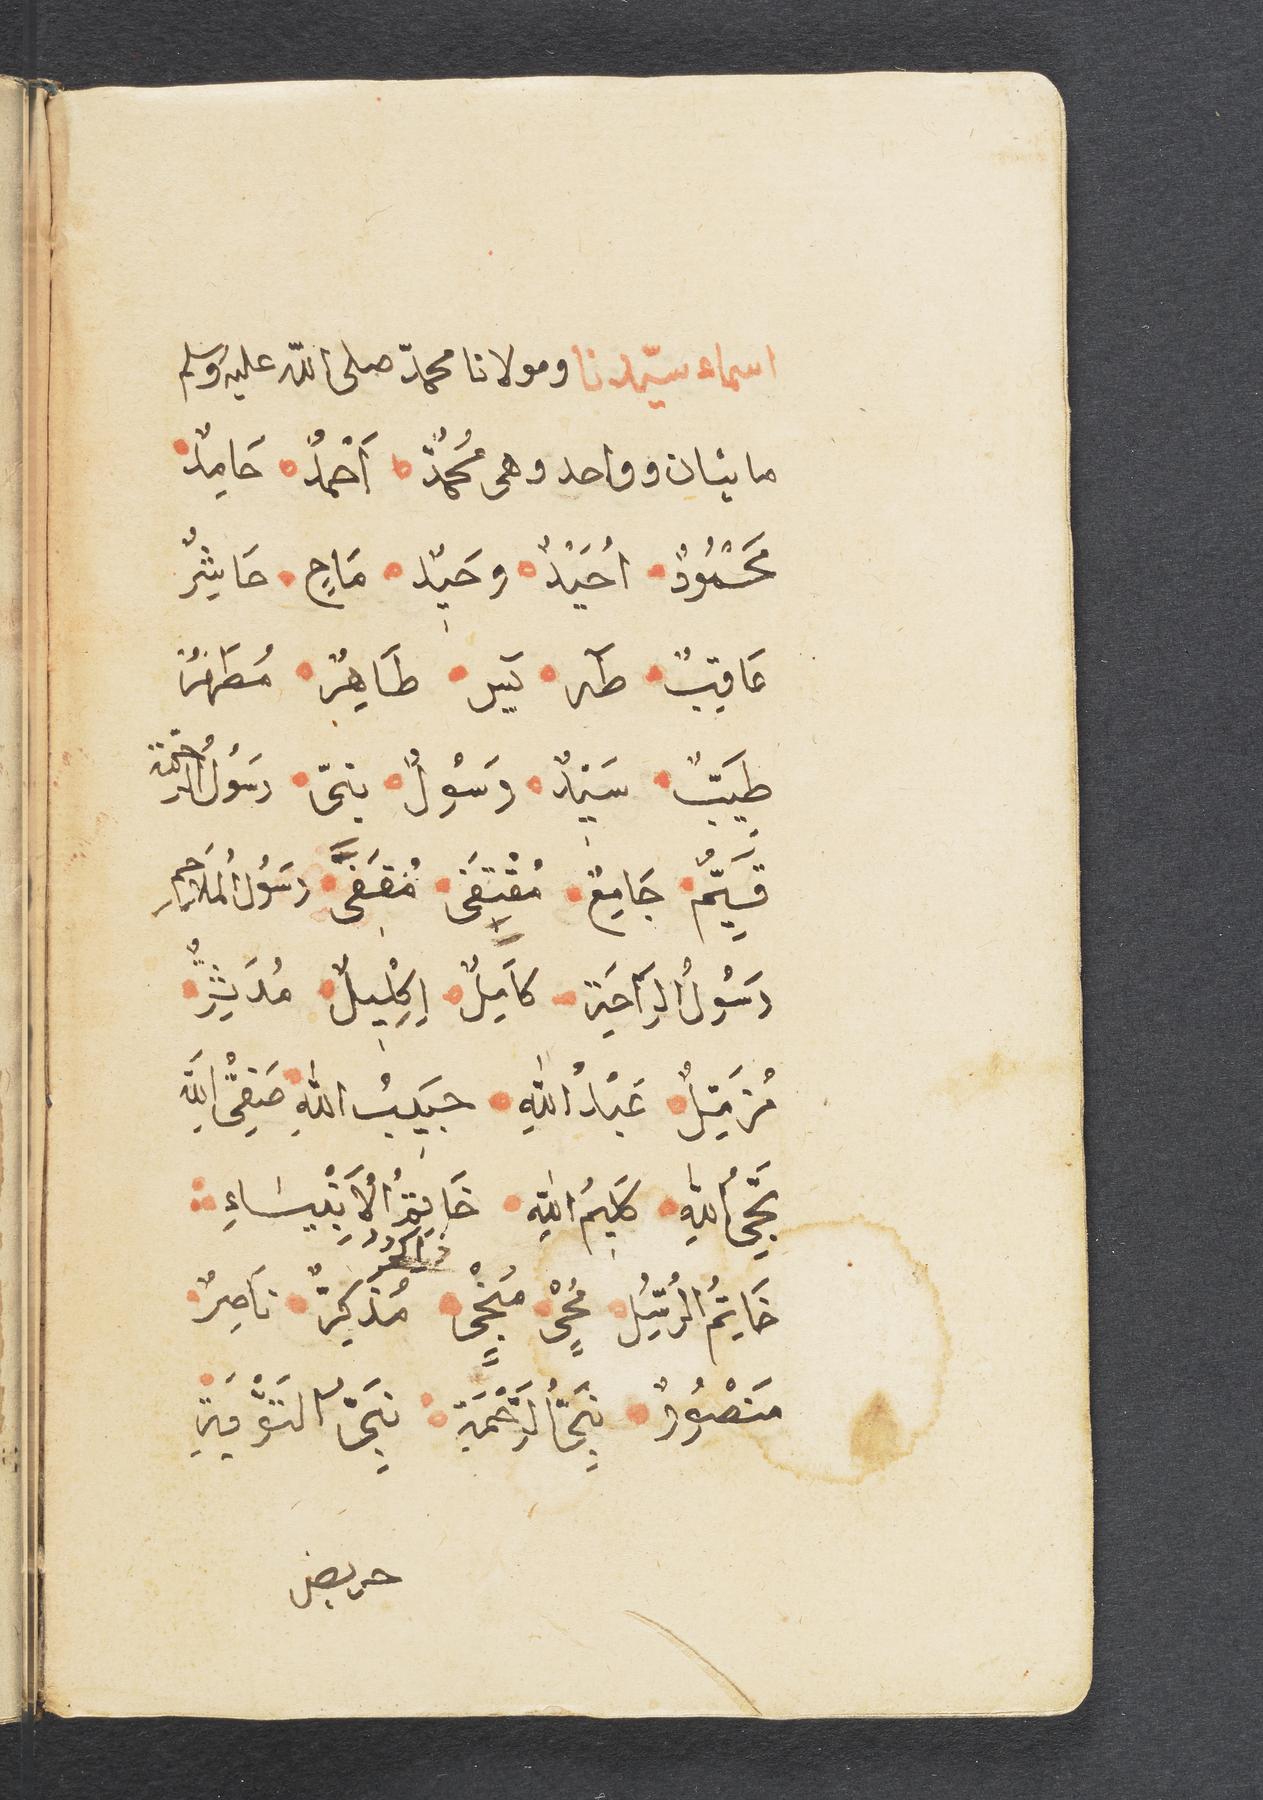 اسماء سيّدنا ومولانا محمدّ صلى الله عليه وسلم
مايتان وواحد وهى مُحَمَّدٌ أَحْمَدُ حَامِدٌ
مَحْمُوْدٌ اُحَيْدٌ وَحَيِدٌ مَاحٍ حَاشِرٌ
عَاقِبٌ طَه يَس طَاهِرٌ مُطَهَّرٌ
طَيِّبٌ سَيِّدٌ رَسُوْلٌ نبىّ رَسُولُ الرَّحْمَة
قَيِّمٌ جَامِعٌ مُقْتَفَى مُقَفَّى رَسُولُ المَلَاحِم
رَسُوْلُ الرَاحَةِ كاَمِلٌ اِكْلِيلٌ مُدَثِّرٌ
مُزَمِّلٌ عَبْدُ اللهِ حَبِيبُ اللهِ صَفِىُّ اللهِ
نَجِىُّ اللهِ كَلِيمُ اللهِ خَاتِمُ الْأَنْبِيَاءِ
ذَاكِرٌ
خَاتِمُ الرُّسُلِ مُحْىٍ مُنَجٍّى مُذَكِّرٌ نَاصِرٌ
مَنْصُوْرٌ نَبِىُّ الرَّحْمَةِ نَبِىُّ التَوْبَةِ
حريص